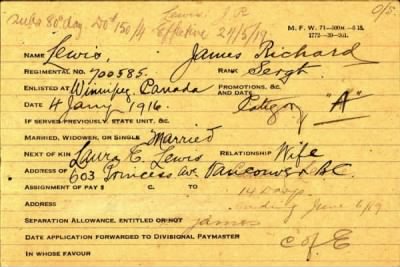 Lewis, J R O/S.
M. F. W. 71
effective 24/5/19
NAME Lewis, James Richard
REGIMENTAL NO. 700585. RANK Sergt.
ENLISTED AT Winnipeg, Canada PROMOTIONS, &C.
AND DATE
DATE 4 Jany 1916. Category "A"
IF SERVED PREVIOUSLY STATE UNIT, &C.
MARRIED, WIDOWER, OR SINGLE Married
NEXT OF KIN Laura E. Lewis RELATIONSHIP Wife
ADDRESS OF 603 Princess Ave Vancouver B.C.
ASSIGNMENT OF PAY $ C. TO 14 Days
ADDRESS ending June 6/19
SEPARATION ALLOWANCE, ENTITLED OR NOT James
DATE APPLICATION FORWARDED TO DIVISIONAL PAYMASTER C of E
IN WHOSE FAVOUR